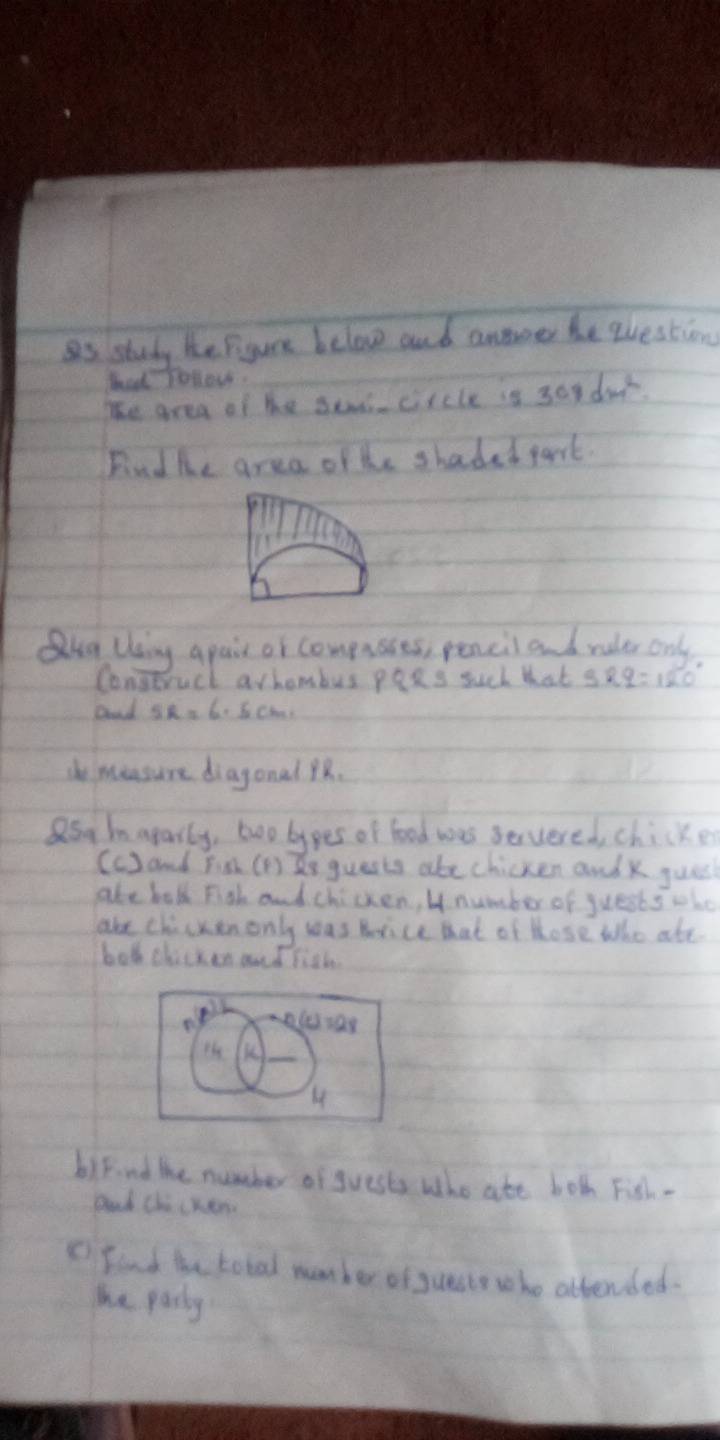 study the Figure below and answer the question
that follow.
The area of the semi-circle is 308dm².
Find the area of the shaded part.
Using a pair of compasses, pencil and ruler only
Construct a rhombus PQRS such that SRQ = 120°
and SR = 6.5cm.
measure diagonal PR.
In a party, two types of food was servered, chicken
(C) and Fish (F) 28 guests ate chicken and K guest
ate both Fish and chicken, 4 number of guests who
ate chicken only was thrice that of those who ate
both chicken and Fish.
n(C)=28
14 K —
4
b) Find the number of guests who ate both Fish-
and chicken.
c) Find the total number of guests who attended-
the party.